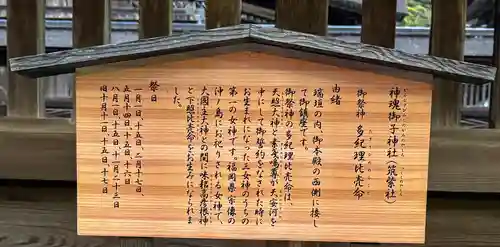 神魂御子神社（筑紫社）
御祭神　多紀理比売命
由緒
瑞垣の内、御本殿の西側に接し
て御鎮座です。
御祭神の多紀理比売命は、
天照大神と素戔嗚尊が天安河を
中にして御誓約をなされた時に
お生まれになった三女神のうちの
第一の女神です。福岡県宗像の
沖ノ島にお祀りされる女神で、
大国主大神との間に味耜高彦根神
と下照比売命をお生みになられま
した。
祭日
二月十七日
八月一日、十五日、十一月二十三日
旧十月十一日、十五日、十七日